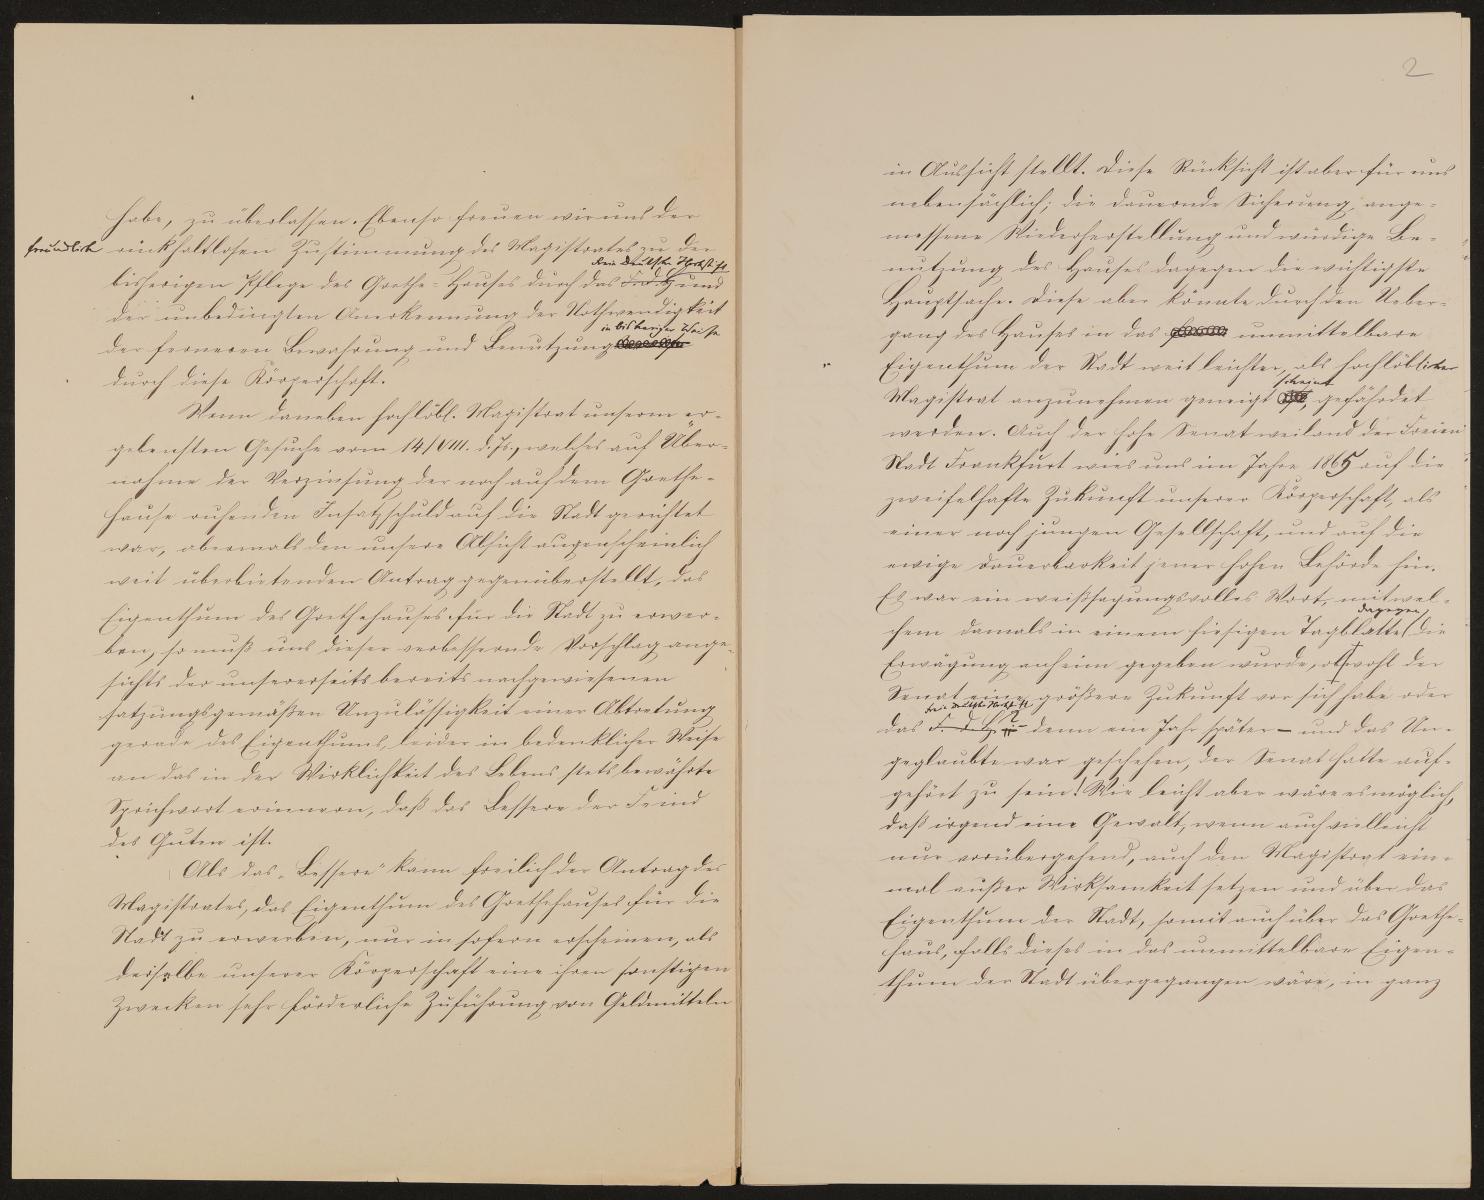 habe, zu überlassen. Ebenso freuen wir uns der
freundlich rückhaltlosen Zustimmung des Magistrates zu der
Freie Deutsche Hochstift
bisherigen Pflege des Goethe-Hauses durch das F. d. H. und
der unbedingten Anerkennung der Nothwendigkeit
in bisheriger Weise
der ferneren Bewahrung und Benutzung
durch diese Körperschaft.
Wenn daneben hochlöbl. Magistrat unserem er-
gebensten Gesuche vom 14/VIII. d. Js., welches auf Über-
nahme der Verzinsung der noch auf dem Goethe-
hause ruhenden Insatzschuld auf die Stadt gerichtet
war, abermals den unsere Absicht augenscheinlich
weit überbietenden Antrag gegenüberstellt, das
Eigenthum des Goethehauses für die Stadt zu erwer-
ben, so muß uns dieser verbessernde Vorschlag ange-
sichts der unsererseits bereits nachgewiesenen
satzungsgemäßen Unzulässigkeit einer Abtretung
gerade des Eigenthums, leider in bedenklicher Weise
an das in der Wirklichkeit des Lebens stets bewährte
Sprichwort erinnern, daß das Bessere der Feind
des Guten ist.
Als das „Bessere" kann freilich der Antrag des
Magistrates, das Eigenthum des Goethehauses für die
Stadt zu erwerben, nur in sofern erscheinen, als
derselbe unserer Körperschaft eine ihren sonstigen
Zwecken sehr förderliche Zuführung von Geldmitteln
2
in Aussicht stellt. Diese Rücksicht ist aber für uns
nebensächlich; die dauernde Sicherung, ange-
messene Wiederherstellung und würdige Be-
nutzung des Hauses dagegen die wichtigste
Hauptsache. Diese aber könnte durch den Ueber-
gang des Hauses in das unmittelbare
Eigenthum der Stadt weit leichter, als hochlöblicher
scheint
Magistrat anzunehmen geneigt, gefährdet
werden. Auch der hohe Senat weiland der Freien
Stadt Frankfurt wies uns im Jahre 1865 auf die
zweifelhafte Zukunft unserer Körperschaft, als
einer noch jungen Gesellschaft, und auf die
ewige Dauerbarkeit jener hohen Behörde hin.
Es war ein weißsagungsvolles Wort, mit wel-
dagegen
chem damals in einem hiesigen Tagblatte die
Erwägung anheim gegeben wurde, ob wohl der
Senat eine größere Zukunft vor sich habe oder
freie deutsche Hochstift
das F. d. H. ? – denn ein Jahr später – und das Un-
geglaubte war geschehen, der Senat hatte auf-
gehört zu sein! Wie leicht aber wäre es möglich,
daß irgend eine Gewalt, wenn auch vielleicht
nur vorübergehend, auch den Magistrat ein-
mal außer Wirksamkeit setzen und über das
Eigenthum der Stadt, somit auch über das Goethe-
haus, falls dieses in das unmittelbare Eigen-
thum der Stadt übergegangen wäre, in ganz